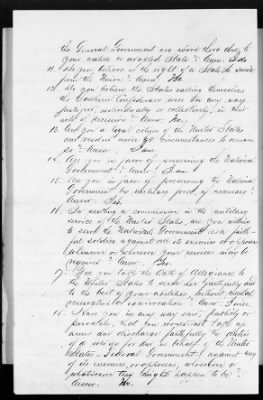 the General Government are above those due to
your native or adopted State? Answ. I do
11. Do you believe in the right of a State to secede
from the Union? Answ. No.
12. Do you believe the States calling themselves
the Southern Confederacy were in any way
justified, individually or collectively, in their
acts of secession? Answ. No.
13. Are you a loyal citizen of the United States
and resolved under all circumstances to remain
so? Answ. I am
14. Are you in favor of preserving the National
Government? Answ. I am
15. Are you in favor of preserving the National
Government by military force if necessary?
Answ. Yes.
16. In seeking a commission in the military
service of the United States, are you willing
to serve the National Government as a faith-
ful soldier against all its enemies or opposers
whenever or wherever your services may be
required? Answ. Yes.
17. Can you take the Oath of Allegiance to
the United States to serve her faithfully and
to the best of your abilities, without mental
reservation or evasion? Answ. I can.
18. Have you in any way said, publicly or
privately, that you would not take up
arms and discharge faithfully the duties
of a soldier for and in behalf of the United
States, Federal Government, against any
of its enemies, or opposers, whosoever or
whatsoever they might happen to be?
Answ. No.